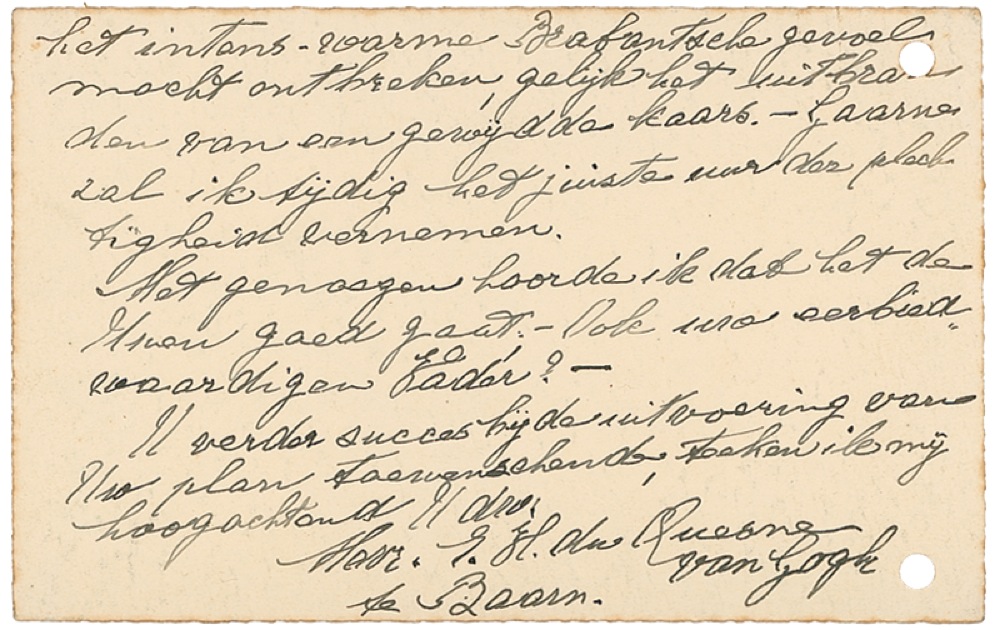 het intens-warme Brabantsche gevoel
mocht ontbreken, gelijk het uitbran
den van een gewijdde kaars. – Gaarne
zal ik tijdig het juiste uur der plech
tigheid vernemen.
Met genoegen hoorde ik dat het de
Uwen goed gaat. – Ook uw eerbied„
waardigen Vader? –
U verder succes bij de uitvoering van
Uw plan toewenschende, teeken ik mij
hoogachtend U dw.
Mevr. E. H. du Quesne
van Gogh
te Baarn.